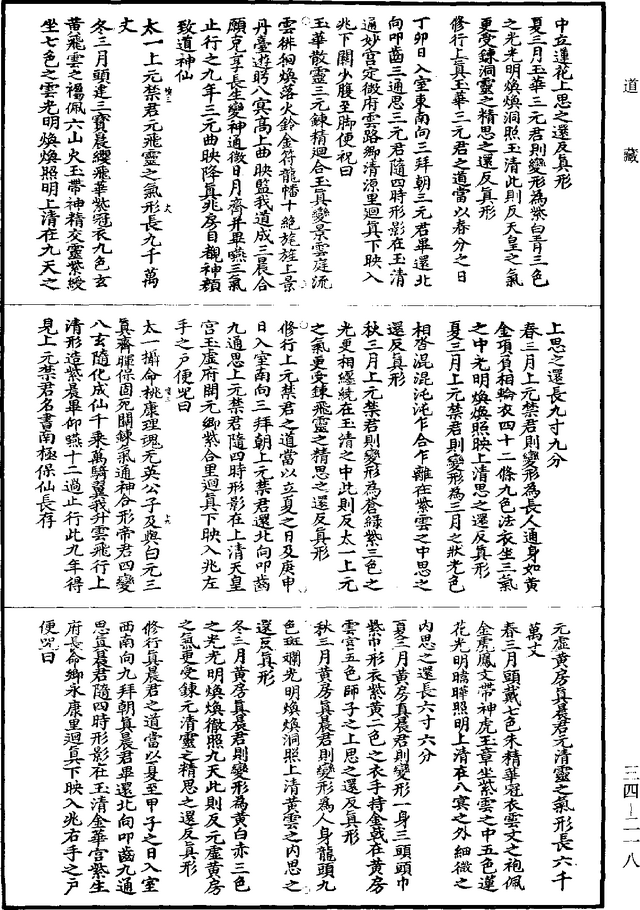 道藏
中立蓮花上思之還反真形
夏三月玉華三元君則變形為紫白青三色
之光光明煥煥洞照玉清此則反天皇之氣
更受鍊洞靈之精思之還反真形
修行上真玉華三元君之道當以春分之日
丁卯日入室東南向三拜朝三元君畢還北
向叩齒三通思三元君隨四時形影在玉清
通妙宮定微府雲路鄉清源里迴真下映入
兆下關少腹至脚便祝曰
玉華散靈三元鍊精迴合玉真變景雲庭流
雲徘徊煥落火鈴金符龍幡十絕旄旌上景
丹臺遊眄八冥高上曲映監我道成三晨合
願兆享長生變神通微日月齊并畢嚥三氣
止行之九年三元曲映降真兆房目觀神顏
致道神仙
太一上元禁君元飛靈之氣形長九千萬
丈
冬三月頭建三寶晨纓飛華紫冠衣九色玄
黃飛雲之褐佩六山火玉帶神精交靈紫綬
坐七色之雲光明煥煥照明上清在九天之
上思之還長九寸九分
春三月上元禁君則變形為長人通身如黃
金項負相輪衣四十二條九色法衣坐三氣
之中光明煥煥照映上清思之還反真形
夏三月上元禁君則變形為三月之狀光色
相沓混混沌沌乍合乍離在紫雲之中思之
還反真形
秋三月上元禁君則變形為蒼綠紫三色之
光更相纏繞在玉清之中此則反太一上元
之氣更受鍊飛靈之精思之還反真形
修行上元禁君之道當以立夏之日及庚申
日入室南向三拜朝上元禁君還北向叩齒
九通思上元禁君隨四時形影在上清天皇
宮玉虛府開元鄉紫合里迴真下映入兆左
手之戶便呪曰
太一攝命桃康理魂无英公子及與白元三
真齊暉保固死關鍊氣通神合形帝君四變
八玄隨化成仙千乘萬騎翼我升雲飛行上
清形造紫晨畢仰嚥十二過止行此九年得
見上元禁君名書南極保仙長存
元虛黃房真晨君元清靈之氣形長六千
萬丈
春三月頭戴七色朱精華冠衣雲文之袍佩
金虎鳳文帶神虎玉章坐紫雲之中五色蓮
花光明暐曄照明上清在八冥之外細微之
內思之還長六寸六分
夏三月黃房真晨君則變形一身三頭頭巾
紫巾形衣紫黃二色之衣手持金戟在黃房
雲宮五色師子之上思之還反真形
秋三月黃房真晨君則變形為人身龍頭九
色斑斕光明煥煥洞照上清黃雲之內思之
還反真形
冬三月黃房真晨君則變形為黃白赤三色
之光光明煥煥徹照九天此則反元虛黃房
之氣更受鍊元清靈之精思之還反真形
修行真晨君之道當以夏至甲子之日入室
西南向九拜朝真晨君畢還北向叩齒九通
思真晨君隨四時形影在玉清金華宮紫生
府長命鄉永康里迴真下映入兆右手之戶
便呪曰
三四－二一八